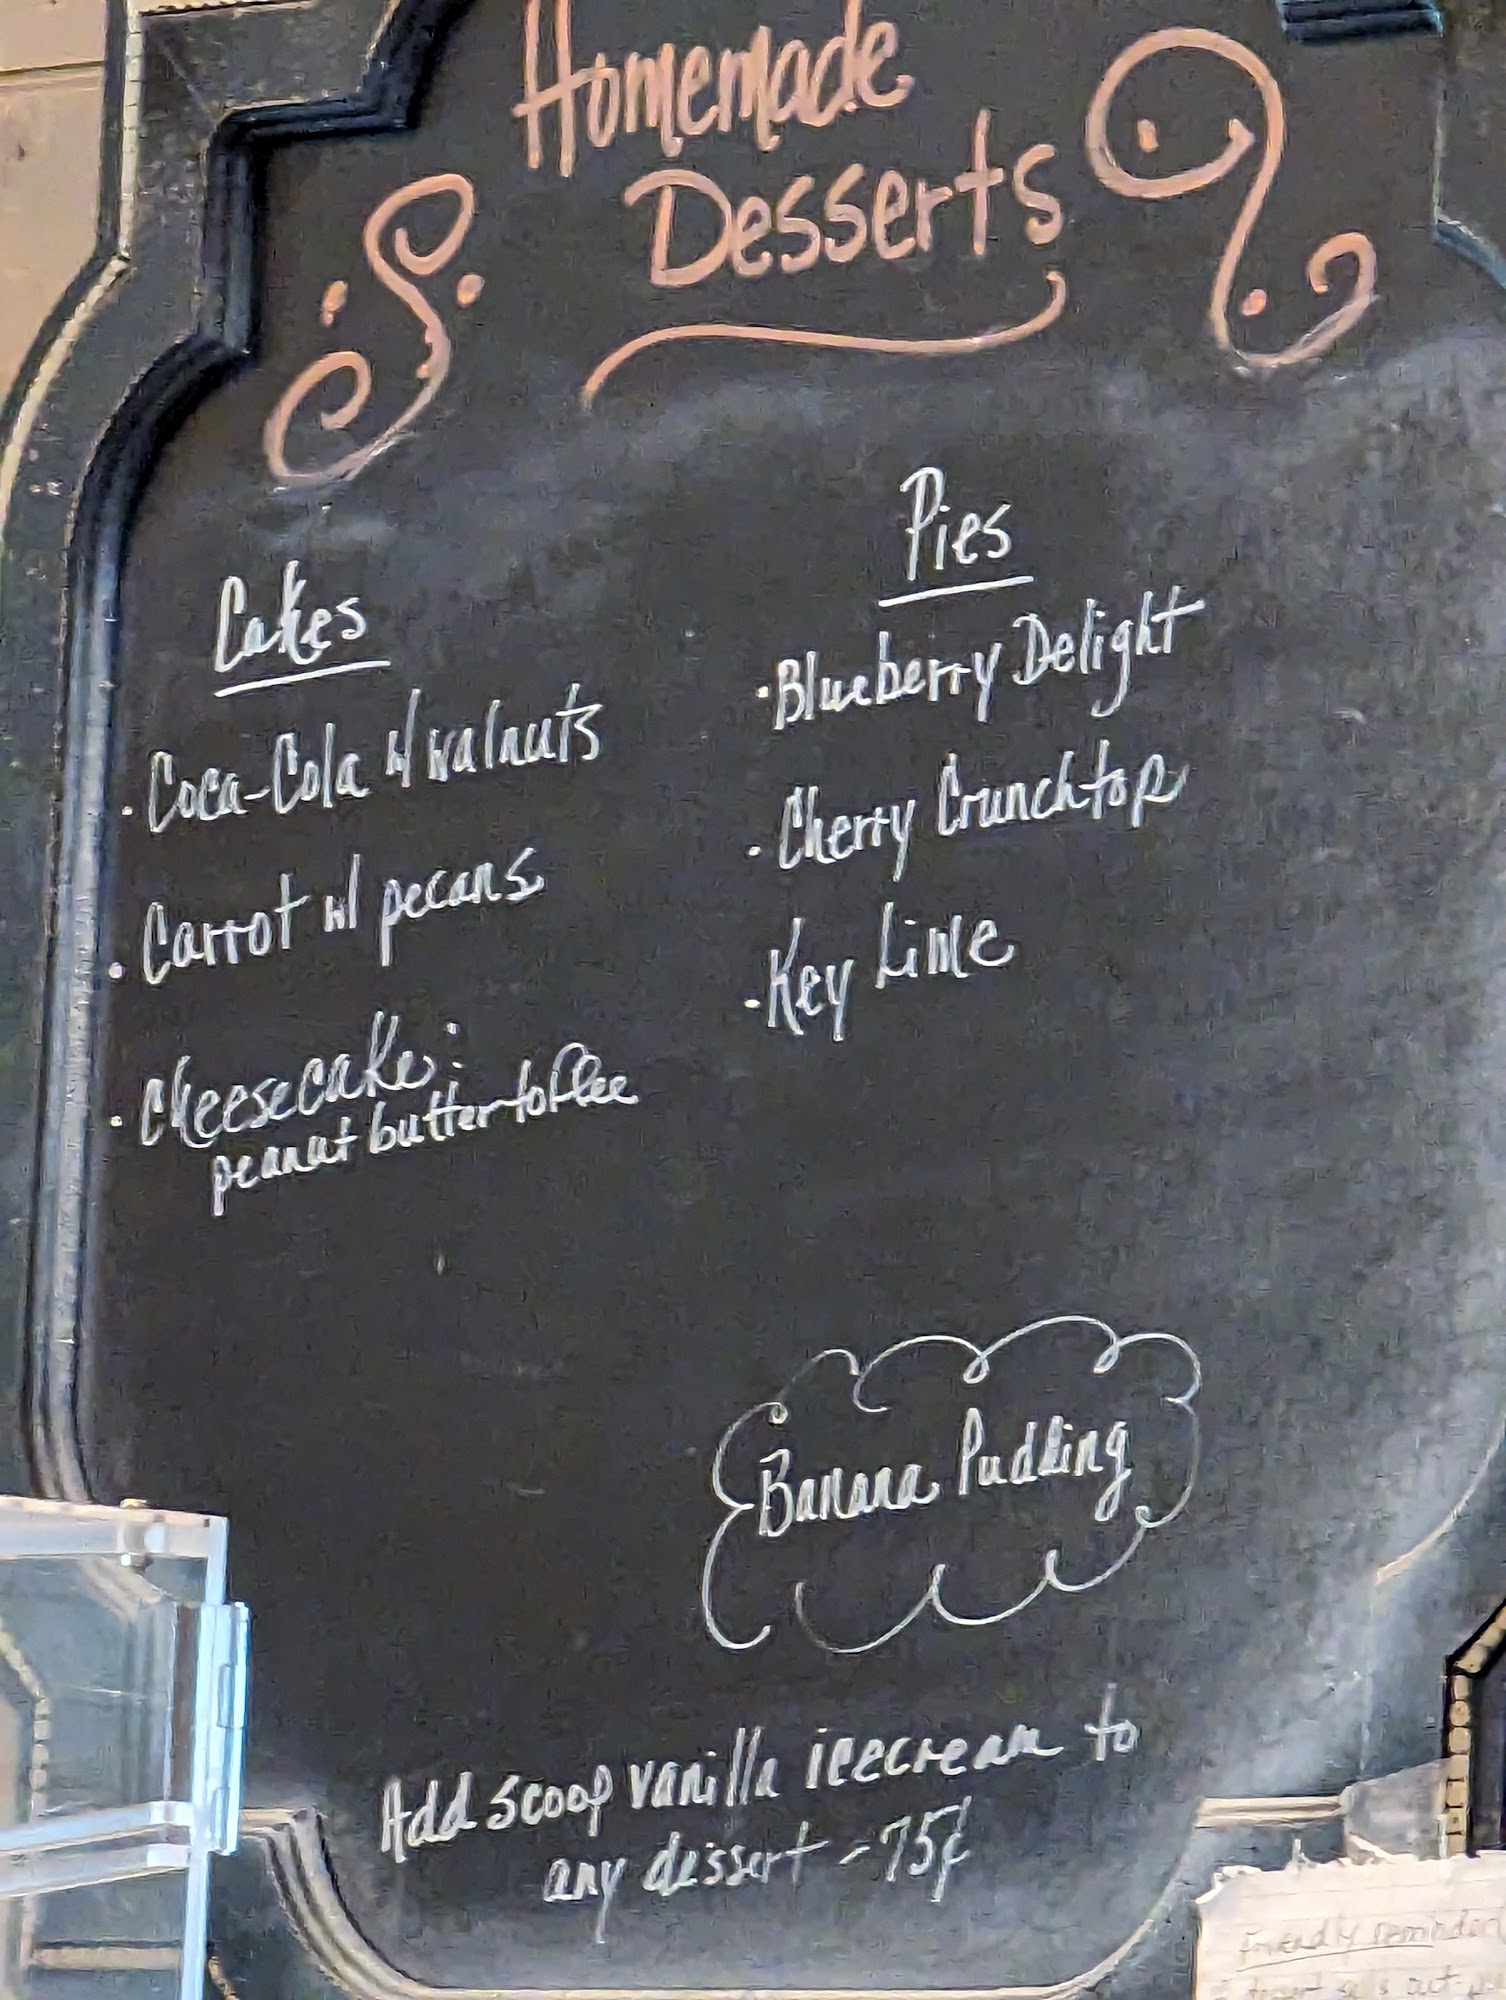 Homemade
Desserts
Cakes
· Coca-Cola w/ walnuts
· Carrot w/ pecans
· Cheesecake:
peanut butter toffee
Pies
· Blueberry Delight
· Cherry Crunchtop
· Key Lime
Banana Pudding
Add scoop vanilla icecream to
any dessert - 75¢
Friendly reminder